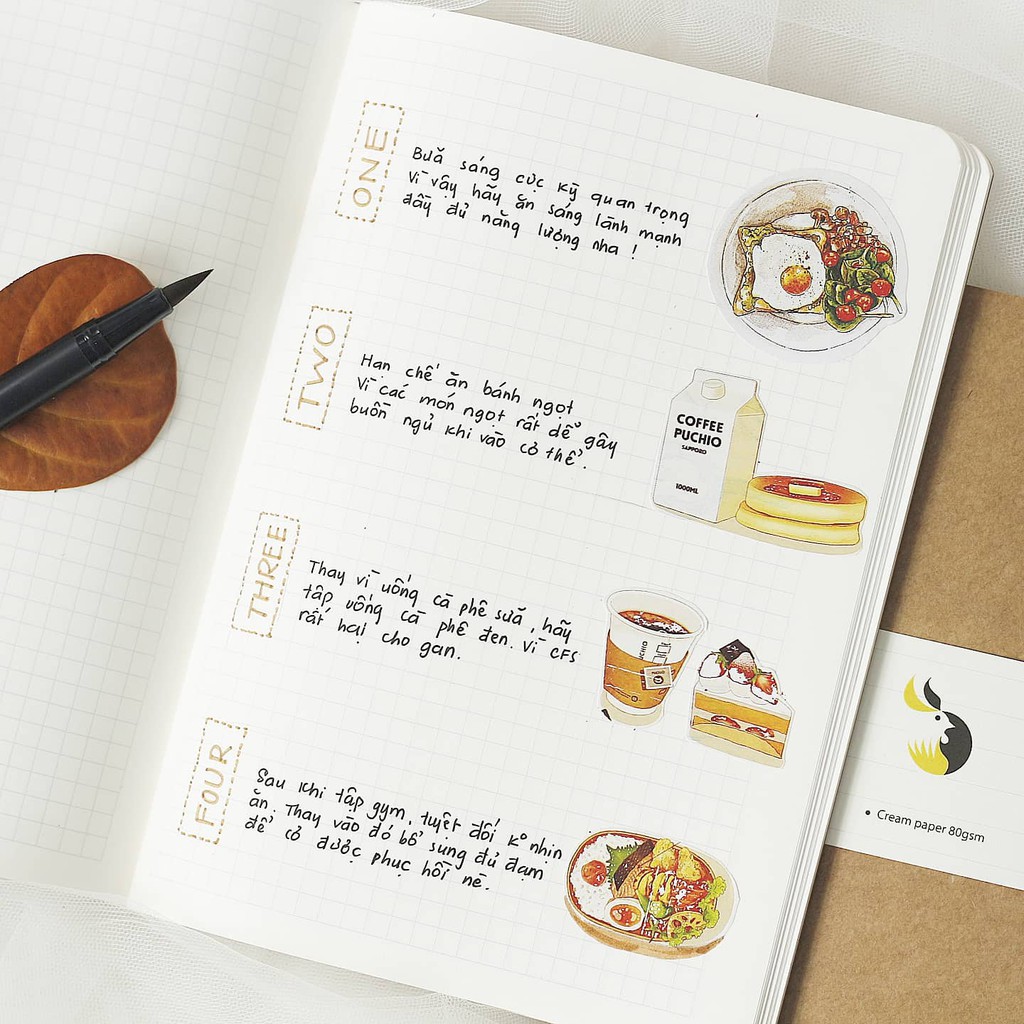 ONE
Bữa sáng cực kỹ quan trọng
Vì vậy hãy ăn sáng lành mạnh
đầy đủ năng lượng nha !
TWO
Hạn chế ăn bánh ngọt
Vì các món ngọt rất dễ gây
buồn ngủ khi vào cơ thể.
COFFEE
PUCHIO
SAPPORO
1000ML
THREE
Thay vì uống cà phê sữa, hãy
tập uống cà phê đen. Vì CFS
rất hại cho gan.
FOUR
Sau khi tập gym, tuyệt đối k° nhịn
ăn. Thay vào đó bổ sung đủ đạm
để cơ được phục hồi nè.
• Cream paper 80gsm